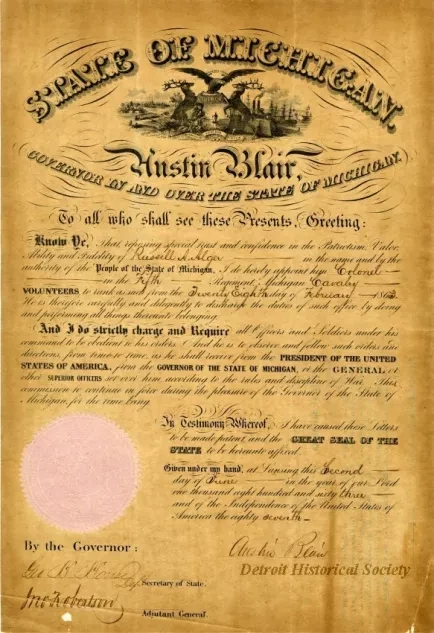 STATE OF MICHIGAN.
Austin Blair,
GOVERNOR IN AND OVER THE STATE OF MICHIGAN.
To all who shall see these Presents, Greeting:
Know Ye, That reposing special trust and confidence in the Patriotism, Valor,
Ability and Fidelity of Russell A. Alger in the name and by the
authority of the People of the State of Michigan, I do hereby appoint him Colonel
in the Fifth Regiment, Michigan Cavalry
VOLUNTEERS to rank as such from the Twenty Eighth day of February 1863.
He is therefore carefully and diligently to discharge the duties of such office by doing
and performing all things thereunto belonging.
And I do strictly charge and Require all Officers and Soldiers under his
command to be obedient to his orders. And he is to observe and follow such orders and
directions, from time to time, as he shall receive from the PRESIDENT OF THE UNITED
STATES OF AMERICA, from the GOVERNOR OF THE STATE OF MICHIGAN, or the GENERAL or
other SUPERIOR OFFICERS set over him according to the rules and discipline of War. This
commission to continue in force during the pleasure of the Governor of the State of
Michigan, for the time being.
In Testimony Whereof, I have caused these Letters
to be made patent, and the GREAT SEAL OF THE
STATE to be hereunto affixed.
Given under my hand, at Lansing this Second
day of June in the year of our Lord
one thousand eight hundred and sixty three
and of the Independence of the United States of
America the eighty seventh
By the Governor:
Austin Blair
Detroit Historical Society
Secretary of State.
Jno Robertson
Adjutant General.